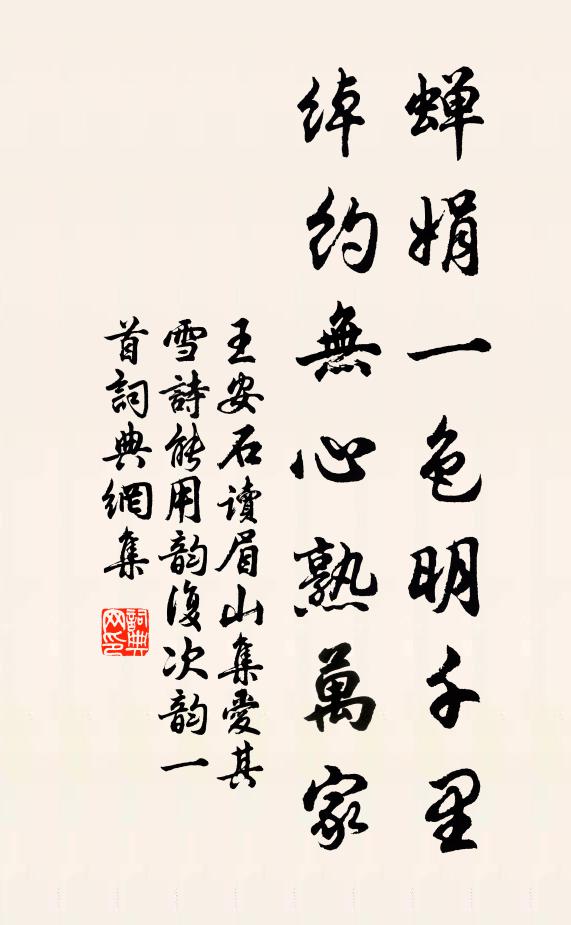 蟬娟一色明千里
綽約無心熟萬家
王安石讀眉山集愛其
雪詩能用韵復次韵一
首詞典網集
詞典
网印